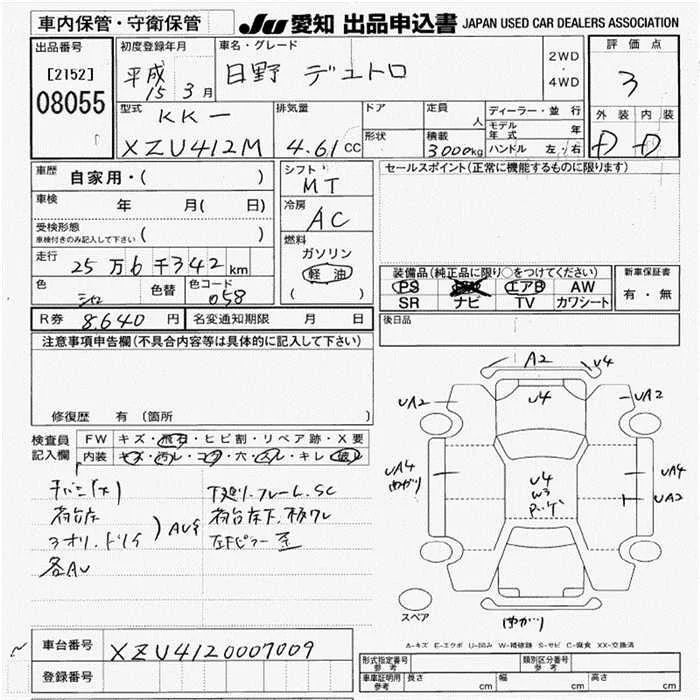 車内保管・守衛保管
JU 愛知 出品申込書 JAPAN USED CAR DEALERS ASSOCIATION
出品番号
[2152]
08055
初度登録年月
平成
15 3月
車名・グレード
日野 デュトロ
2WD
・
4WD
評価点
3
外装 内装
D D
型式
KK-
XZU412M
排気量
4.61 CC
ドア
形状
定員
人
積載
3000kg
ディーラー・並行
モデル年式 年
ハンドル 左・右
車歴
自家用・( )
車検
年 月( 日)
受検形態
車検付きのみ記入して下さい ( )
走行
25万6千342 km
色
シロ
色替
色コード
058
シフト
MT
冷房
AC
燃料
ガソリン
軽油
( )
セールスポイント(正常に機能するものに限ります)
装備品(純正品に限り○をつけてください)
PS エアB AW
SR ナビ TV カワシート
新車保証書
有・無
R券 8,640 円
名変通知期限 月 日
後日品
注意事項申告欄(不具合内容等は具体的に記入して下さい)
修復歴 有(箇所
検査員
記入欄
FW キズ・飛石・ヒビ割・リペア跡・X要
内装 キズ・汚レ・コゲ・穴・スレ・キレ・破レ
荷台床
アオリ・トリイ
) AUS
各AU
下廻り・フレームSC
荷台床下、板ワレ
A2
U4
UA2
U4
UA2
UA4
ゆがり
U4
W3
UA4
UA2
ゆがり
スペア
A-キズ E-エクボ U-凹み W-補修跡 S-サビ C-腐食 XX-交換済
車台番号
XZU4120007009
登録番号
形式指定番号
参考
類別区分番号
参考
車庫証明用
参考
長さ cm
幅 cm
高さ cm